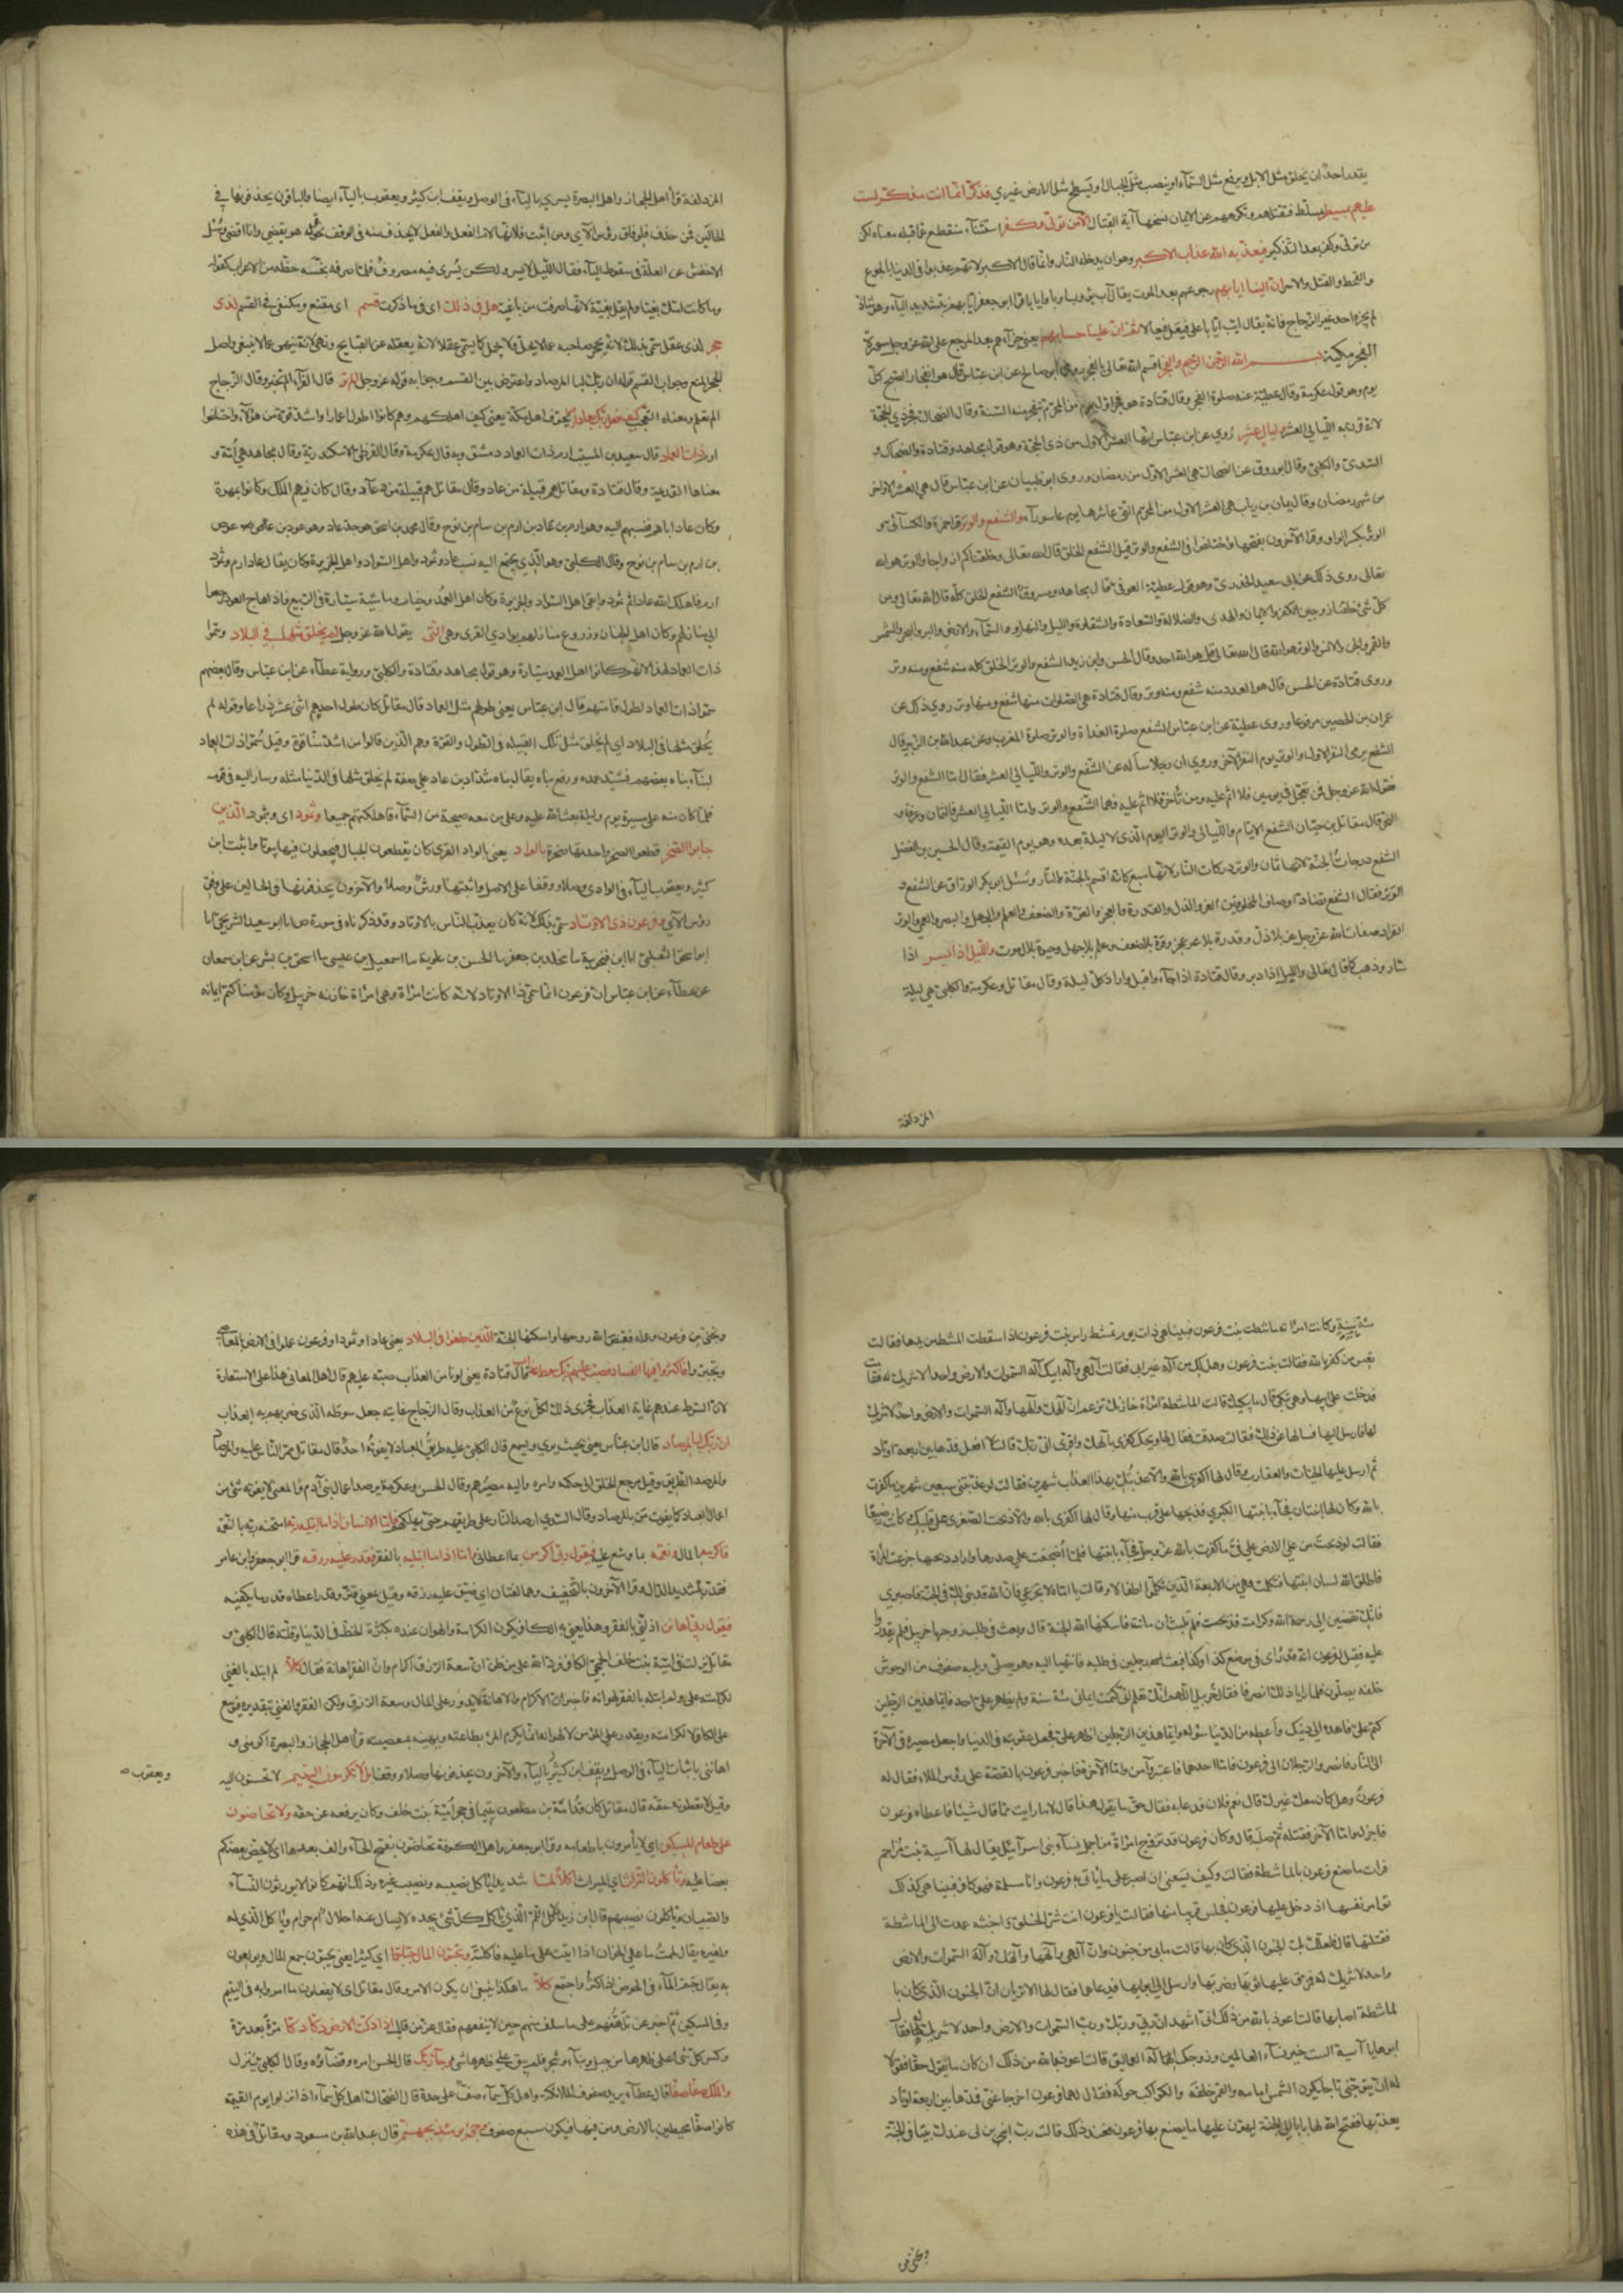 يقدر احد ان يخلق مثل الابل ويرفع مثل السمآء او ينصب مثل الجبال او يسطح مثل الارض غيري فذكر انما انت مذكر لست
عليهم بمسيطر بمسلط فتقتلهم وتكرههم عن الايمان نسختها آية القتال الا من تولى وكفر استثنآء منقطع عما قبله معناه لكن
من تولى وكفر بعد التذكير فيعذبه الله عذاب الاكبر وهو ان يدخله النار وانما قال الاكبر لانهم عذبوا في الدنيا بالجوع
والقحط والقتل والاسر ان الينا ايابهم رجوعهم بعد الموت يقال آب يئوب اوبا وايابا قرا ابو جعفر ايابهم بتشديد اليآء وهو شاذ
لم يجزه احد غير الزجاج فانه يقال ايب ايابا على فيعل فيعالا ثم ان علينا حسابهم يعني جزآءهم بعد المرجع على الله عز وجل سورة
الفجر مكية بسم الله الرحمن الرحيم والفجر اقسم الله تعالى بالفجر روى ابو صالح عن ابن عباس قال هو انفجار الصبح كل
يوم وهو قول عكرمة وقال عطية عنه صلوة الفجر وقال قتادة هو فجر اول يوم من المحرم تنفجر منه السنة وقال الضحاك فجر ذي الحجة
لانه قرن به الليالي العشر وليال عشر روي عن ابن عباس انها العشر الاول من ذي الحجة وهو قول مجاهد وقتادة والضحاك و
السدي والكلبي وقال ابو روق عن الضحاك هي العشر الاول من رمضان وروى ابو ظبيان عن ابن عباس قال هي العشر الاواخر
من شهر رمضان وقال يمان بن رياب هي العشر الاول من المحرم التي عاشرها يوم عاسورآء والشفع والوتر قرا حمزة والكسائي
الوتر بكسر الواو وقرا الآخرون بفتحها واختلفوا في الشفع والوتر قيل الشفع الخلق قال الله تعالى وخلقناكم ازواجا والوتر هو الله
تعالى روى ذلك عن ابي سعيد الخدري وهو قول عطية العوفي وقال مجاهد ومسروق الشفع الخلق كله قال الله تعالى ومن
كل شئ خلقنا زوجين الكفر والايمان والهدى والضلالة والسعادة والشقاوة والليل والنهار والسمآء والارض والبر والبحر والشمس
والقمر والجن والانس والوتر هو الله قال الله تعالى قل هو الله احد وقال الحسن وابن زيد الشفع والوتر الخلق كله منه شفع ومنه وتر
وروى قتادة عن الحسن قال هو العدد منه شفع ومنه وتر وقال قتادة هي الصلوات منها شفع ومنها وتر روي ذلك عن
عمران بن الحصين مرفوعا وروى عطية عن ابن عباس الشفع صلوة الغداة والوتر صلوة المغرب وعن عبد الله بن الزبير قال
الشفع يوم النفر الاول والوتر يوم النفر الآخر وروي ان رجلا سأله عن الشفع والوتر والليالي العشر فقال اما الشفع والوتر
فقول الله عز وجل فمن تعجل في يومين فلا اثم عليه ومن تأخر فلا اثم عليه فهما الشفع والوتر واما الليالي العشر فالثمان وعرفة و
النحر قال مقاتل بن حيان الشفع الايام والليالي والوتر اليوم الذي لا ليلة بعده وهو يوم القيمة وقال الحسين بن الفضل
الشفع درجات الجنة لانها ثمان والوتر دركات النار لانها سبع كانه اقسم بالجنة والنار وسئل ابو بكر الوراق عن الشفع و
الوتر فقال الشفع تضاد اوصاف المخلوقين العز والذل والقدرة والعجز والقوة والضعف والعلم والجهل والبصر والعمى والوتر
انفراد صفات الله عز وجل عز بلا ذل وقدرة بلا عجز وقوة بلا ضعف وعلم بلا جهل وحيوة بلا موت والليل اذا يسر اذا
سار وذهب كما قال تعالى والليل اذا دبر وقال قتادة اذا جآء واقبل واراد كل ليلة وقال مقاتل وعكرمة والكلبي هي ليلة
المزدلفة
المزدلفة قرأ اهل الحجاز واهل البصرة يسري باليآء في الوصل ويقف ابن كثير ويعقوب باليآء ايضا والباقون يحذفونها في
الحالين فمن حذف فلوفاق رؤس الآي ومن اثبت فلانها لام الفعل والفعل لا يحذف منه في الوقف نحو قوله هو يقضي وانا اقضي وسئل
الاخفش عن العلة في سقوط اليآء فقال الليل لا يسر ولكن يسرى فيه مصروف فلما صرفه بخسه حظه من الاعراب كقوله
وما كانت امك بغيا ولم يقل بغية لانها صرفت من باغية هل في ذلك اى فيما ذكرت قسم اى مقنع ومكتفى في القسم لذى
حجر لذى عقل سمى بذلك لانه يحجر صاحبه عما لا يحل ولا يجمل كما يسمى عقلا لانه يعقله عن القبايح ونهى لانه ينهى عما لا ينبغي واصل
الحجر المنع وجواب القسم قوله ان ربك لبالمرصاد واعترض بين القسم وجوابه قوله عز وجل الم تر قال الفرآء الم تخبر وقال الزجاج
الم تعلم ومعناه التعجب كيف فعل ربك بعاد يخوف اهل مكة يعني كيف اهلكهم وهم كانوا اطول اعمارا واشد قوة من هؤلآء واختلفوا
ارم ذات العماد قال سعيد بن المسيب ارم ذات العماد دمشق وبه قال عكرمة وقال القرظي الاسكندرية وقال مجاهد هي امة و
معناها القديمة وقال قتادة ومقاتل هم قبيلة من عاد وقال مقاتل هم قبيلة من عآد وقال كان فيهم الملك وكانوا بمهرة
وكان عاد اباهم فنسبهم اليه وهو ارم بن عاد بن ارم بن سام بن نوح وقال محمد بن اسحق هو جد عاد وهو عود بن عوص
بن ارم بن سام بن نوح وقال الكلبي وهو الذي يجتمع اليه نسب عاد وثمود واهل السواد واهل الجزيرة وكان يقال عاد ارم وثمود
ارم فاهلك الله عادا ثم ثمود وبقي اهل السواد والجزيرة وكان اهل العمد وخيام وماشية سيارة في الربيع فاذا هاج العود رجعوا
الى منازلهم وكان اهل الجنان وزروع منازلهم بوادي القرى وهي التى يقول الله عز وجل لم يخلق مثلها في البلاد وسموا
ذات العماد لهذا لانهم كانوا اهل العمد سيارة وهو قول مجاهد وقتادة والكلبي ورواية عطآء عن ابن عباس وقال بعضهم
سموا ذات العماد لطول قامتهم قال ابن عباس يعني طولهم مثل العماد قال مقاتل كان طول احدهم اثنى عشر ذراعا وقوله لم
يخلق مثلها في البلاد اي لم يخلق مثل تلك القبيلة في الطول والقوة وهم الذين قالوا من اشد منا قوة وقيل سموا ذات العماد
لبنآء بناه بعضهم فشيد عمده ورفع بناه يقال بناه شداد بن عاد على صفة لم يخلق مثلها في الدنيا مثله وسار اليه في قومه
فلما كان منه على مسيرة يوم وليلة بعث الله عليه وعلى من معه صيحة من السمآء فاهلكتهم جميعا وثمود اى وبثمود الذين
جابوا الصخر قطعوا الصخر واحدتها صخرة بالواد يعني بالواد القرى كان يقطعون الجبال فيجعلون فيها بيوتا واثبت ابن
كثير ويعقوب اليآء في الوادي وصلا ووقفا على الاصل واثبتها ورش وصلا والآخرون يحذفونها في الحالين على وفق
رؤس الآي وفرعون ذى الاوتاد سمى بذلك لانه كان يعذب الناس بالاوتاد وقد ذكرناه في سورة ص انا ابو سعيد الشريحي انا
ابو اسحق الثعلبي انا ابن فنجوية نا مخلد بن جعفر نا الحسن بن علوية نا اسمعيل بن عيسى نا اسحق بن بشر عن ابن سمعان
عن عطآء عن ابن عباس ان فرعون انما سمى ذا الاوتاد لانه كانت امرأة وهي امرأة خازنه خربيل وكان مؤمنا كتم ايمانه
سنة وكانت امرأته ماشطت بنت فرعون فبينا هي ذات يوم تمشط راس بنت فرعون اذا سقطت المشط من يدها فقالت
تعس من كفر بالله فقالت بنت فرعون وهل لك من اله غير ابى فقالت الهي واله ابيك اله السموات والارض واحد لا شريك له فقامت
فدخلت على ابيها وهي تبكي قال ما يبكيك قالت الماشطة امرأة خازنك تزعم ان الهك والهها واله السموات والارض واحد لا شريك
لها فارسل اليها فسالها عن ذلك فقالت صدقت فقال لها ويحك اكفري بالهك واقرى انى ربك قالت لا افعل فدها بين اربعة اوتاد
ثم ارسل عليها الحيات والعقارب وقال لها اكفري بالله والا عذبتك بهذا العذاب شهرين فقالت لو عذبتني سبعين شهرين ما كفرت
بالله وكان لها ابنتان فجآء بابنتها الكبرى فذبحها على قرب منها وقال لها اكفرى بالله والا ذبحت الصغرى على قلبك وكانت رضيعا
فقالت لو ذبحت من على الارض على في ما كفرت بالله عز وجل فجآء بابنتها فلما اضجعت على صدرها واراد ذبحها جزعت المرأة
فاطلق الله لسان ابنتها فتكلمت وهي من الاربعة الذين تكلموا اطفالا وقالت يا امتاه لا تجزعي فان الله قد بنى لك في الجنة فاصبري
فانك تفضين الى رحمة الله وكرامته فذبحت فلم تلبث ان ماتت فاسكنها الله الجنة قال وبعث في طلب زوجها خربيل فلم يقدروا
عليه فقيل لفرعون انه قد رأى في موضع كذا وكذا فبعث رجلين في طلبه فانتهيا اليه وهو يصلي ويليه صفوف من الوحوش
خلفه يصلون فلما رأيا ذلك انصرفا فقال خربيل اللهم انك تعلم انى كتمت ايمانى سنة ولم يظهر على احد فايما هذين الرجلين
كتم على فاهده الى دينك واعطه من الدنيا سؤله وايما هذين الرجلين اظهر على فعجل عقوبته في الدنيا واجعل مصيره في الآخرة
الى النار فانصرف الرجلان الى فرعون فاما احدهما فاعتبر وآمن واما الآخر فاخبر فرعون بالقصة على رؤس الملاء فقال له
فرعون وهل كان معك غيرك قال نعم فلان فدعا به فقال حق ما يقول هذا قال لا ما رايت مما قال شيئا فاعطاه فرعون
فاجزله واما الآخر فقتله ثم صلبه قال وكان فرعون قد تزوج امرأة من اجمل نسآء بنى اسرآئيل يقال لها آسية بنت مزاحم
فرات ما صنع فرعون بالماشطة فقالت وكيف يسعنى ان اصبر على ما يأتى به فرعون وانا مسلمة فهو كافر فبينا هي كذلك
توامر نفسها اذ دخل عليها فرعون فجلس قريبا منها فقالت يا فرعون انت شر الخلق واخبثه عمدت الى الماشطة
فقتلتها قال فلعلك بك الجنون الذي كان بها قالت ما بى من جنون وان الهي والهها والهك واله السموات والارض
واحد لا شريك له فمزق عليها ثيابها وضربها وارسل الى ابويها فدعاهما فقال لهما الا تريان ان الجنون الذي كان با
لماشطة اصابها قالت اعوذ بالله من ذلك انى اشهد ان ربى وربك ورب السموات والارض واحد لا شريك له فقال
ابوها يا آسية الست خير نسآء العالمين وزوجك اله العماليق قالت اعوذ بالله من ذلك ان كان ما يقول حقا فقولا
له ان يتوجني تاجا يكون الشمس امامه والقمر خلفه والكواكب حوله فقال لهما فرعون اخرجا عنى فدها بين اربعة اوتاد
يعذبها ففتح الله لها بابا الى الجنة ليهون عليها ما يصنع بها فرعون فعند ذلك قالت رب ابن لى عندك بيتا في الجنة
ونجني من
ونجنى من فرعون وعمله فقبض الله روحها واسكنها الجنة الذين طغوا فى البلاد يعني عادا وثمودا وفرعون عملوا فى الارض بالمعاصى
وتجبروا فاكثروا فيها الفساد فصب عليهم ربك سوط عذاب قال قتادة يعني لونا من العذاب صبه عليهم قال اهل المعاني هذا على الاستعارة
لان السوط عندهم غاية العذاب فجرى ذلك لكل نوع من العذاب وقال الزجاج جعل سوطه الذى ضربهم به العذاب
ان ربك لبالمرصاد قال ابن عباس يعني بحيث يرى ويسمع قال الكلبي عليه طريق العباد لا يفوته احد قال مقاتل ممر الناس عليه والمرصاد
والمرصد الطريق وقيل مرجع الخلق الى حكمه وامره واليه مصيرهم وقال الحسن وعكرمة يرصد اعمال بنى آدم والمعنى لا يفوته شئ من
اعمال العباد كما يفوت من بالمرصاد وقال السدي ارصد النار على طريقهم حتى يهلكهم فاما الانسان اذا ما ابتليه ربه امتحنه ربه بالنعمة
فاكرمه بالمال ونعمه بما وسع عليه فيقول ربى اكرمن بما اعطاني واما اذا ما ابتليه بالفقر فقدر عليه رزقه قرا ابو جعفر وابن عامر
فقدر بتشديد الدال وقرا الآخرون بالتخفيف وهما لغتان اي ضيق عليه رزقه وقيل بمعني قتر وقدر اعطاه قدر ما يكفيه
فيقول ربى اهانن اذلني بالفقر وهذا يعني به الكافر يكون الكرامة والهوان عنده بكثرة الحظ فى الدنيا وقلته قال الكلبي و
مقاتل نزلت في امية بن خلف الجمحي الكافر فرد الله على من ظن ان سعة الرزق اكرام وان الفقر اهانة فقال كلا لم ابتله بالغنى
لكرامته على ولم ابتله بالفقر لهوانه فاخبر ان الاكرام والاهانة لا يدور على المال وسعة الرزق ولكن الفقر والغنى بتقديره فيوسع
على الكافر لا لكرامته ويقدر على المؤمن لا لهوانه انما يكرم المرء بطاعته ويهينه بمعصيته قرأ اهل الحجاز والبصرة اكرمني و
اهانني باثبات اليآء فى الوصل ويقف ابن كثير باليآء والآخرون يحذفونها وصلا ووقفا بل لا تكرمون اليتيم لا تحسنون اليه
ويعقوب صح
وقيل لا تعطونه حقه قال مقاتل كان قدامة بن مظعون يتيما في حجر امية بن خلف وكان يدفعه عن حقه ولا تحاضون
على طعام المسكين اي لا يأمرون باطعامه وقرأ ابو جعفر واهل الكوفة تحاضون بفتح الحآء والف بعدها اى لا يحض بعضكم
بعضا عليه وتأكلون التراث اي الميراث اكلا لما شديدا يأكل نصيبه ونصيب غيره وذلك انهم كانوا لا يورثون النسآء
والصبيان ويأكلون نصيبهم قال ابن زيد الاكل اللم الذي يأكل كل شئ يجده لا يسأل عنه احلال ام حرام ويأكل الذي له
ولغيره يقال لممت ما على الخوان اذا اتيت على ما عليه فاكلته وتحبون المال حبا جما اى كثيرا يعني يحبون جمع المال ويولعون
به يقال جم المآء فى الحوض اذا كثر واجتمع كلا ما هكذا ينبغي ان يكون الامر وقال مقاتل اى لا يفعلون ما امروا به فى اليتيم
وفى المسكين ثم اخبر عن تلهفهم على ما سلف منهم حين لا ينفعهم فقال عز من قائل اذا دكت الارض دكا دكا مرة بعد مرة
وكسر كل شئ على ظهرها من جبل وبنآء وشجر فلم يبق على ظهرها شئ وجآء ربك قال الحسن امره وقضآؤه وقال الكلبي ينزل
والملك صفا صفا قال عطآء يريد صفوف الملائكة واهل كل سمآء صف على حدة قال الضحاك اهل كل سمآء اذا نزلوا يوم القيمة
كانوا صفا محيطين بالارض ومن فيها فيكون سبع صفوف وجئ يومئذ بجهنم قال عبد الله بن مسعود ومقاتل في هذه